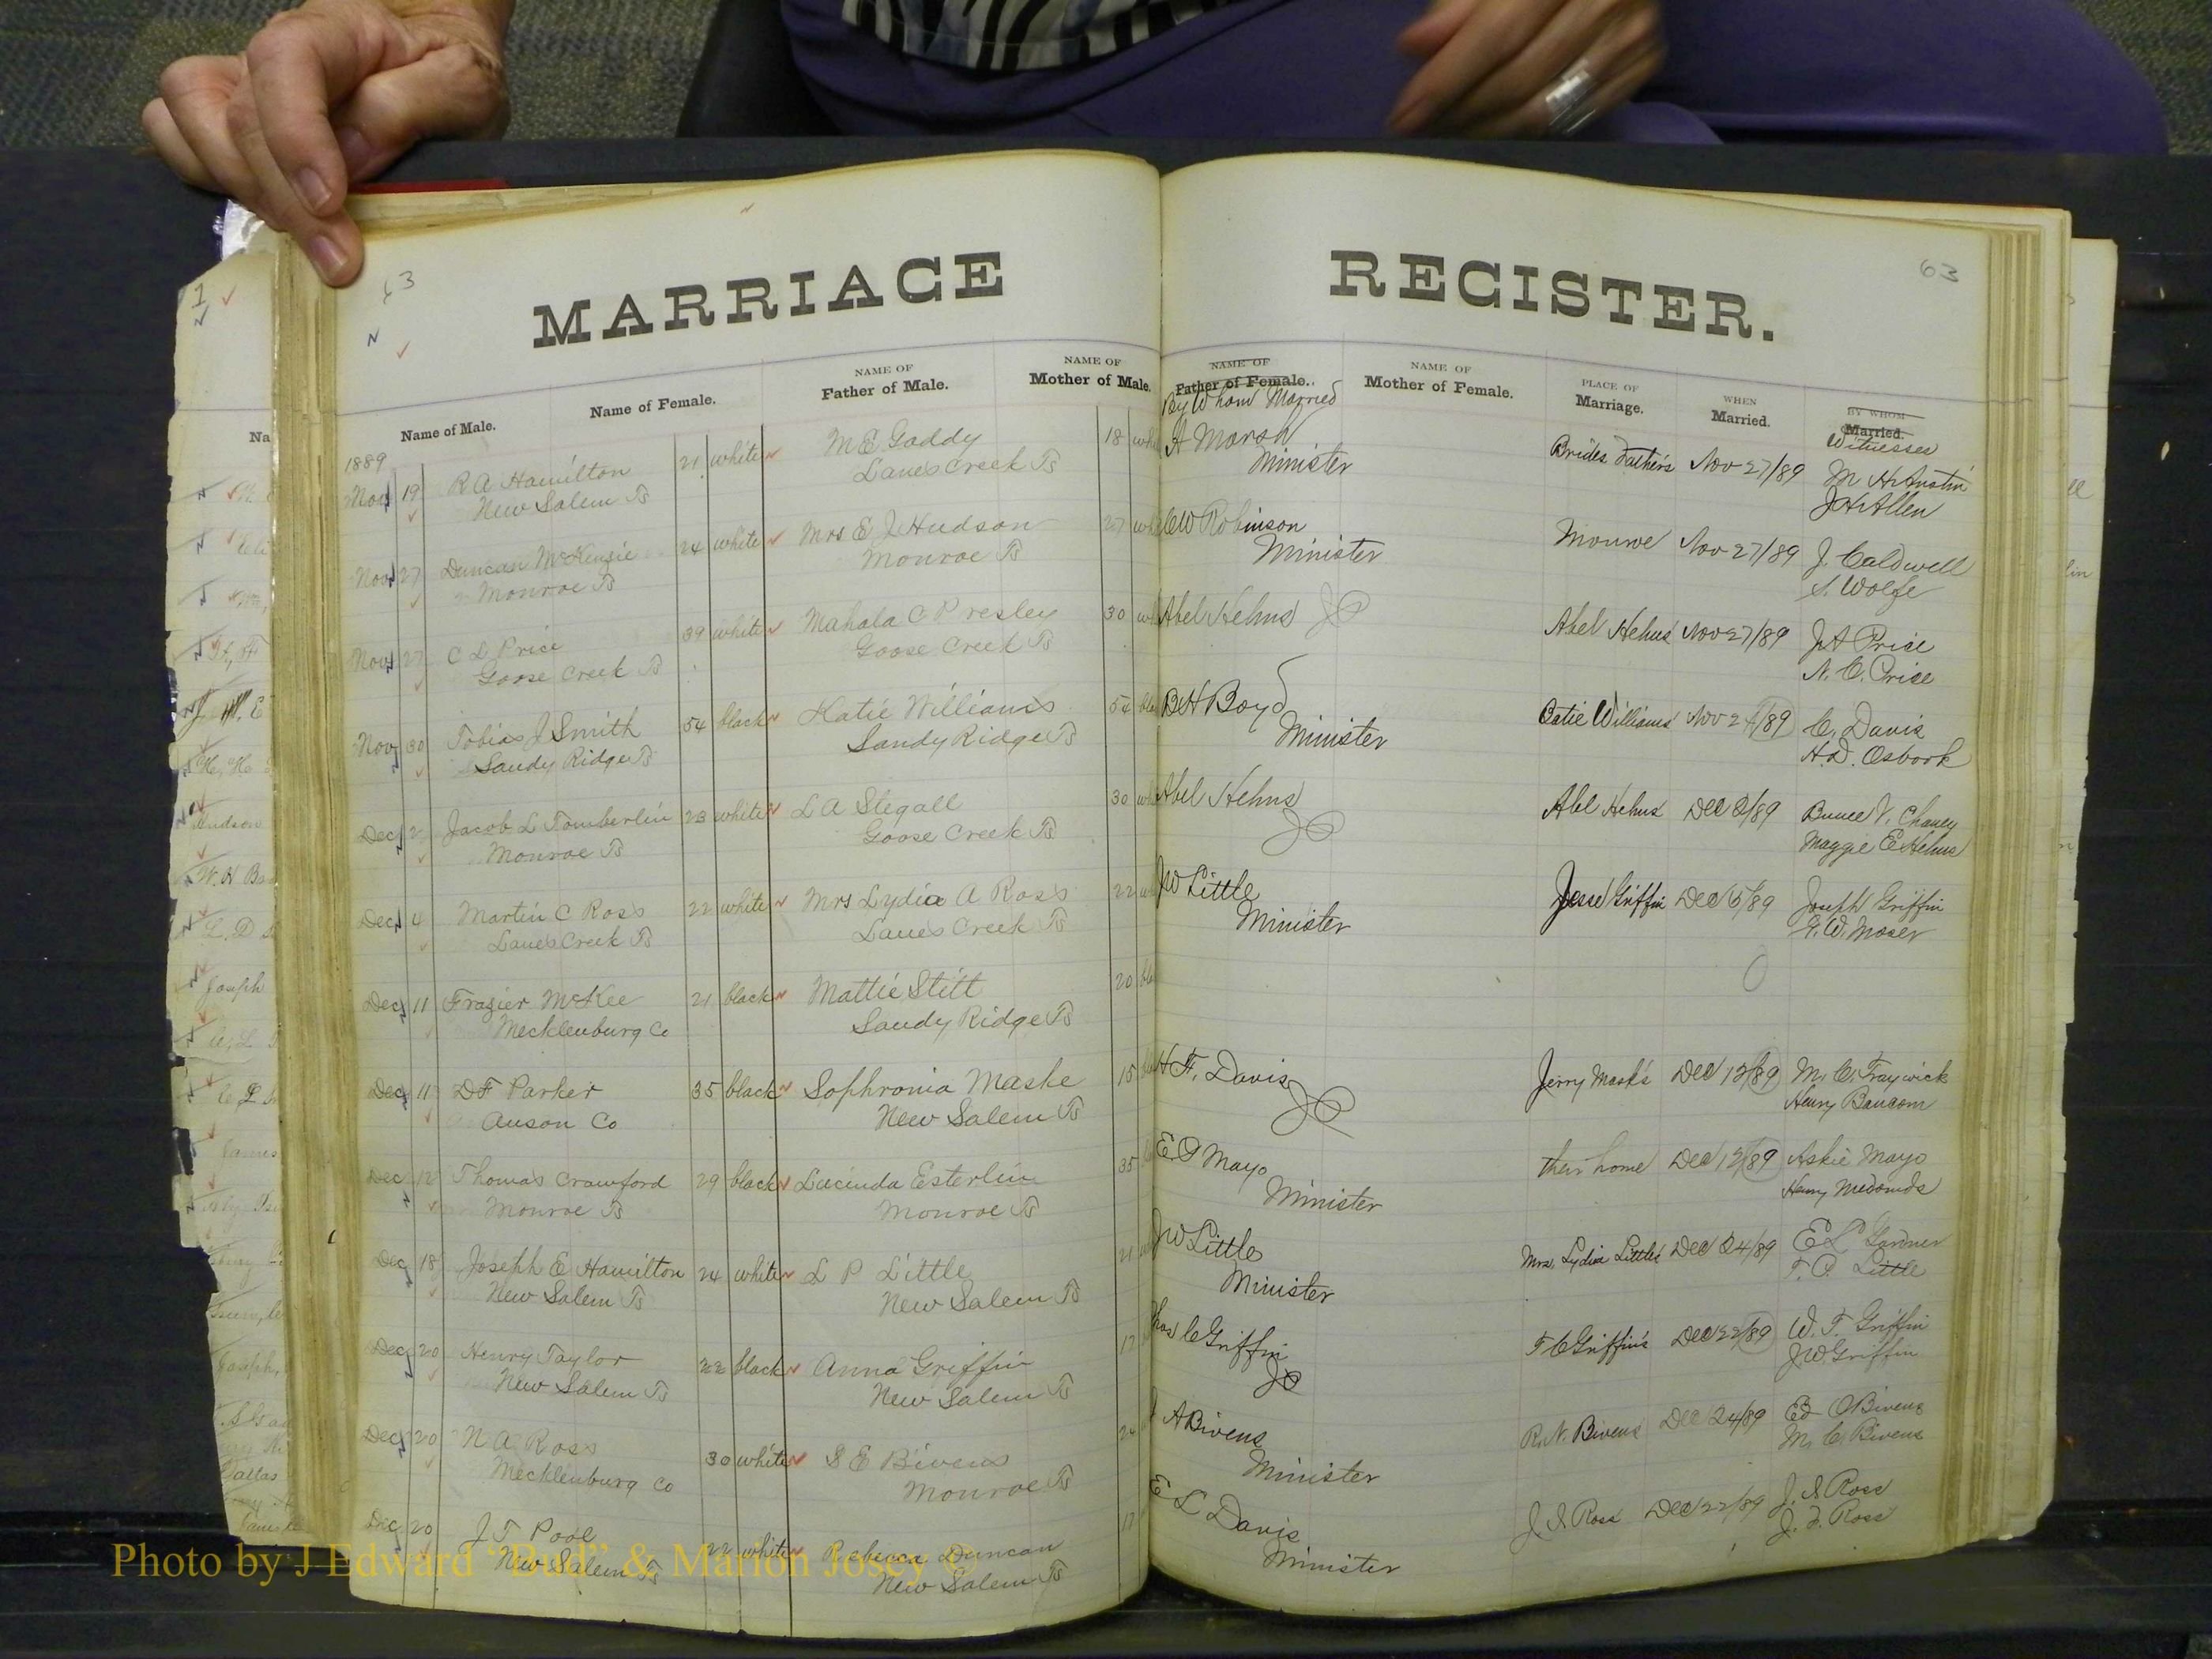 63
MARRIAGE
Name of Male.
Name of Female.
NAME OF
Father of Male.
NAME OF
Mother of Male.
1889
Nov 19 R A Hamilton 21 white M E Gaddy 18
New Salem Ts Lanes Creek Ts
Nov 27 Duncan McKenzie 24 white Mrs E J Hudson 27
Monroe Ts Monroe Ts
Nov 27 C L Price 39 white Mahala C Presley 30
Goose Creek Ts Goose Creek Ts
Nov 30 Tobias J Smith 54 black Katie Williams 54
Sandy Ridge Ts Sandy Ridge Ts
Dec 2 Jacob L Tomberlin 23 white L A Stegall 30
Monroe Ts Goose Creek Ts
Dec 4 Martin C Ross 22 white Mrs Lydia A Ross 22
Lanes Creek Ts Lanes Creek Ts
Dec 11 Frazier McKee 21 black Mattie Stitt 20
Mecklenburg Co Sandy Ridge Ts
Dec 11 D F Parker 35 black Sophronia Maske 15
Anson Co New Salem Ts
Dec 12 Thomas Crawford 29 black Lucinda Esterlin 35
Monroe Ts Monroe Ts
Dec 18 Joseph E Hamilton 24 white L P Little 21
New Salem Ts New Salem Ts
Dec 20 Henry Taylor 22 black Anna Griffin 17
New Salem Ts New Salem Ts
Dec 20 N A Ross 30 white S E Bivens 24
Mecklenburg Co Monroe Ts
Dec 20 J T Pool 22 white Rebecca Duncan
New Salem Ts New Salem Ts
63
REGISTER.
NAME OF
Father of Female.
By Whom Married
NAME OF
Mother of Female.
PLACE OF
Marriage.
WHEN
Married.
BY WHOM
Married.
Witnesses
A Marsh Brides Fathers Nov 27/89 M H Austin
Minister J H Allen
C W Robinson Monroe Nov 27/89 J. Caldwell
Minister S. Wolfe
Abel Helms JP Abel Helms Nov 27/89 J A Price
N. C. Price
B H Boyd Catie Williams Nov /89 C. Davis
Minister H. D.
Abel Helms Abl Helms Dec 2/89 V. Chaney
JP Maggie E Helms
J W Little Jesse Griffin Dec /89 Joseph Griffin
Minister G. W. Moser
H F. Davis Jerry Mask's Dec 12/89 M. C. Traywick
JP Henry Baucom
E P Mayo their home Dec 12/89 Askie Mayo
Minister Henry
J W Little Mrs. Lydia Little's Dec 24/89 E L Garner
Minister T. P. Little
C Griffin T C Griffin's Dec 22/89 W. T. Griffin
JP J W Griffin
A Bivens R. N. Bivens Dec 24/89 Ed O Bivens
Minister M. C. Bivens
E L Davis J. S Ross Dec 22/89 J. S Ross
Minister J. F. Ross
Photo by J Edward "Bud" & Marion Josey ©